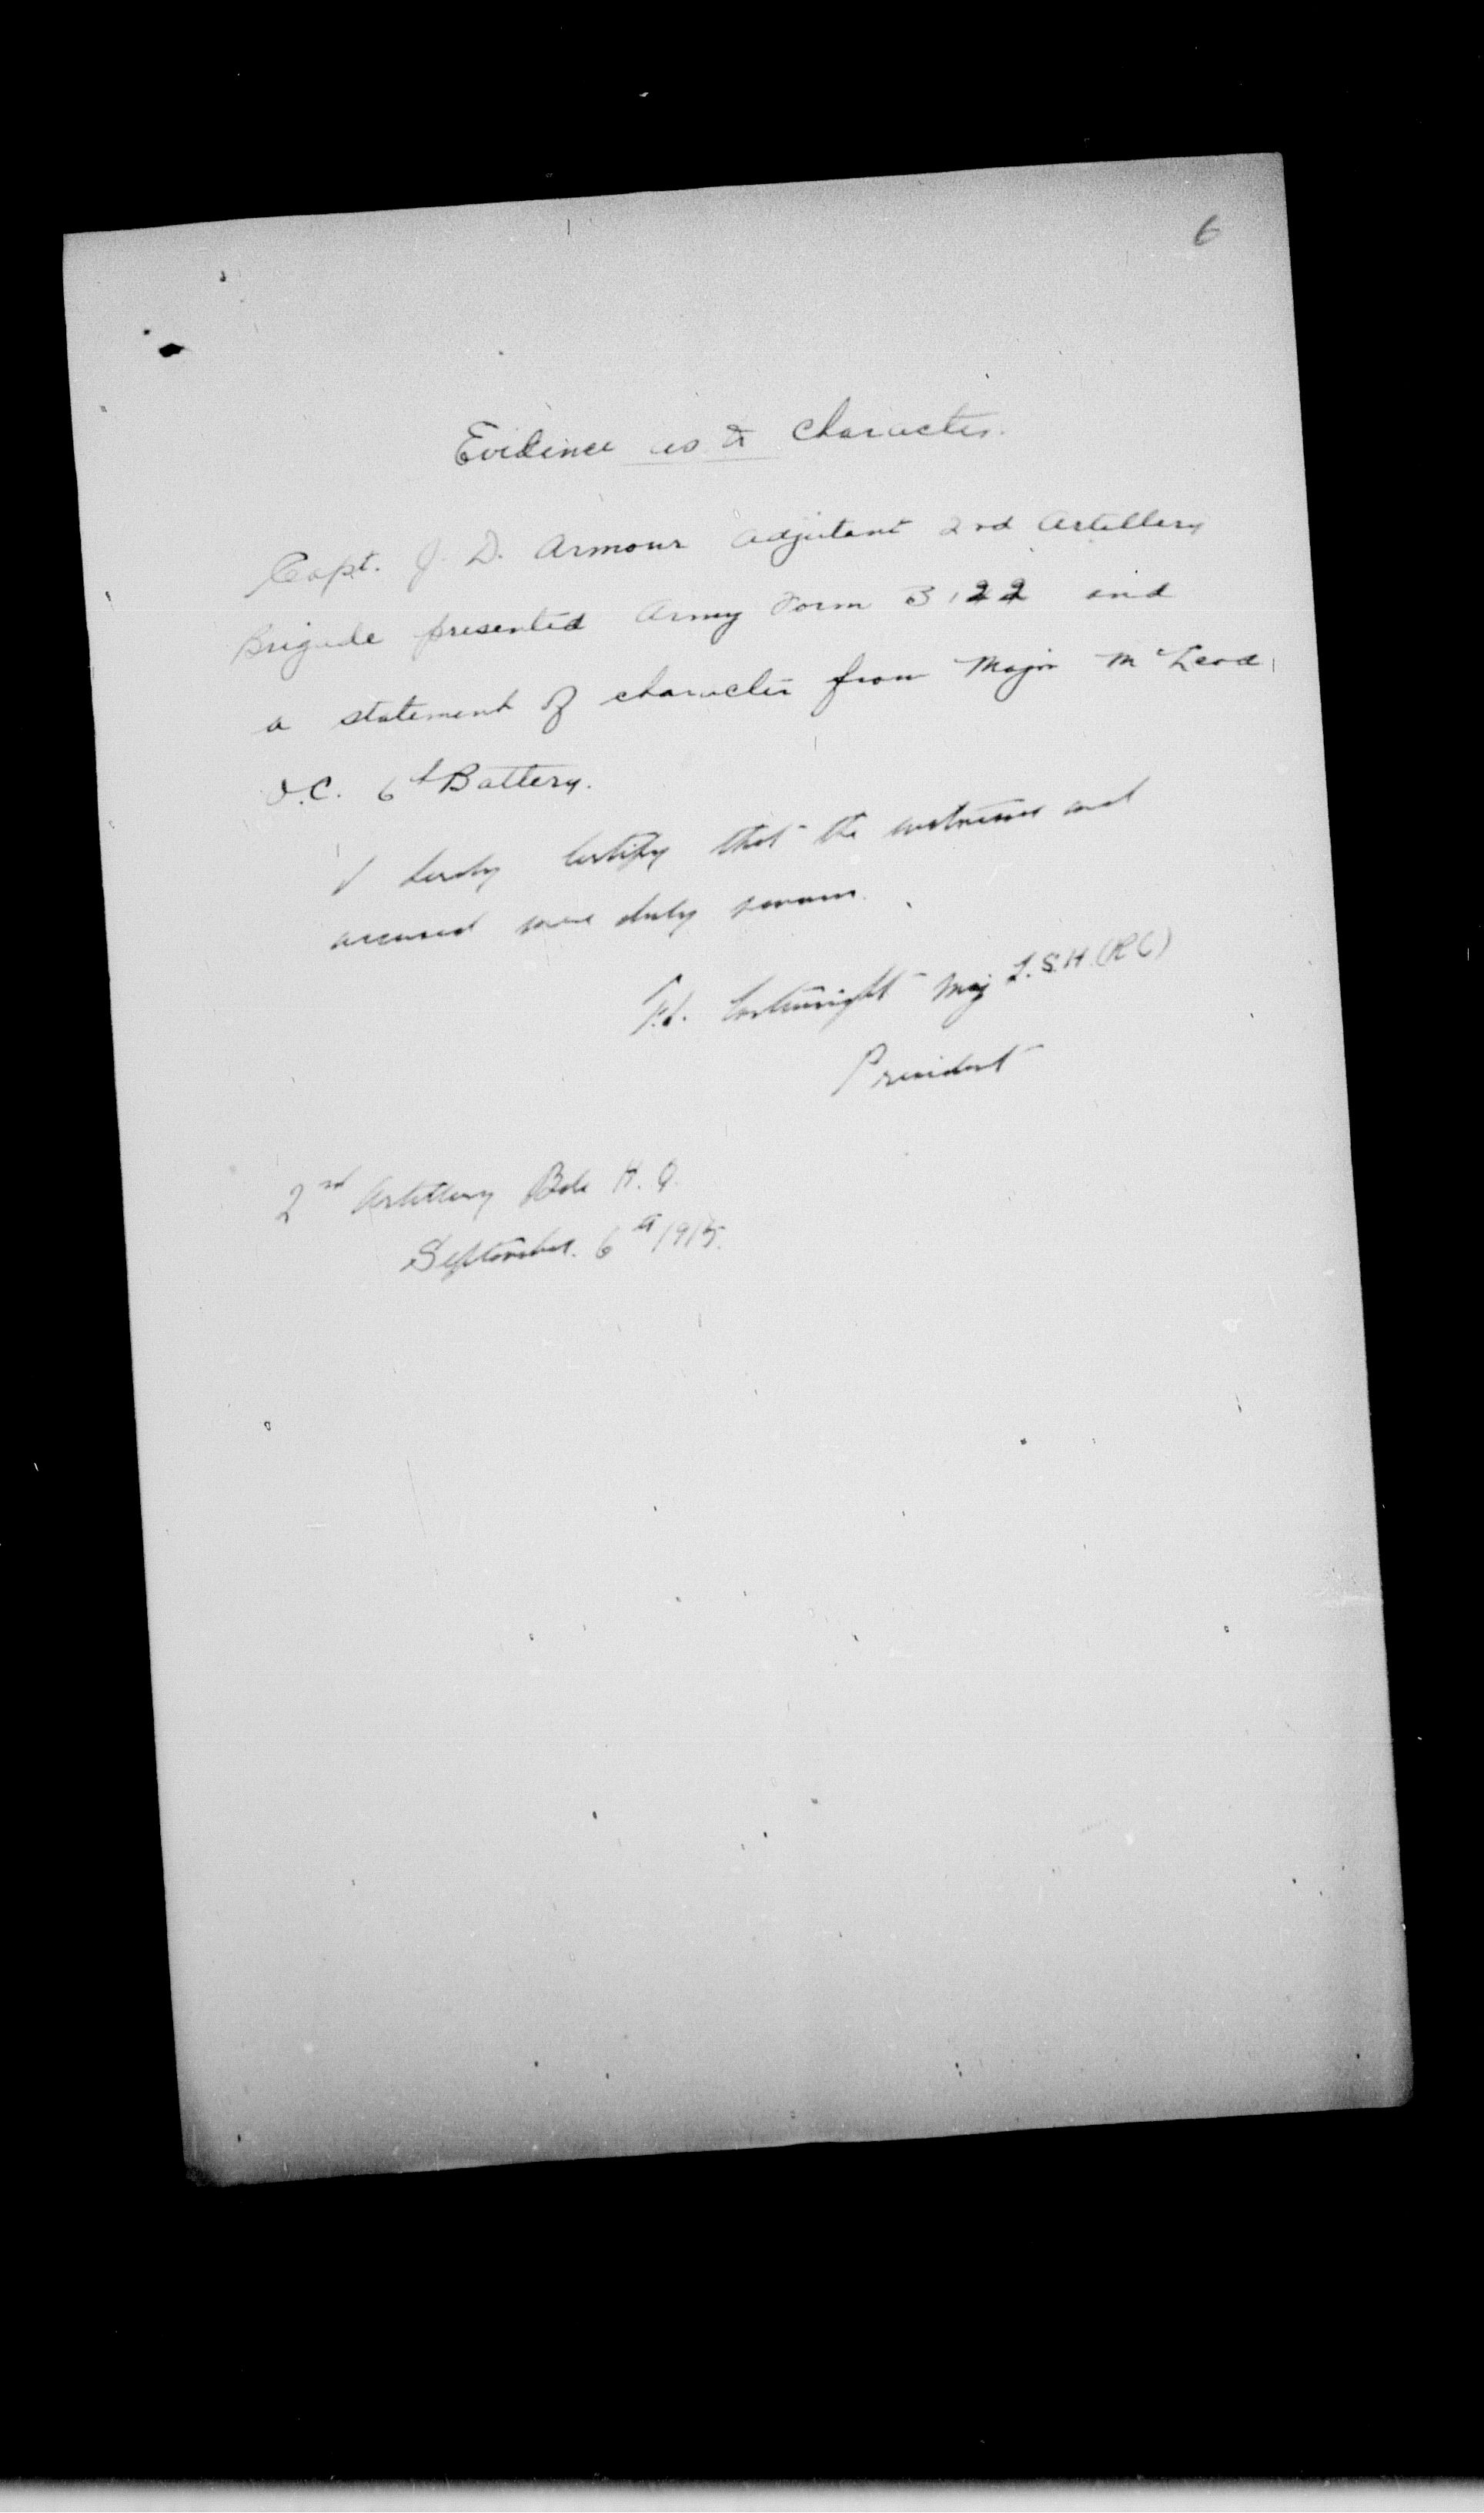 6
Evidence as to character.
Capt. J. D. Armour adjutant 2nd Artillery
Brigade presented Army Form B 122 and
a statement of character from Major McLeod
O.C. 6th Battery.
I hereby certify that the witnesses and
accused were duly sworn.
Cartwright Maj L.S.H. (R C)
President
2nd Artillery Bde H. Q.
September 6th 1915.